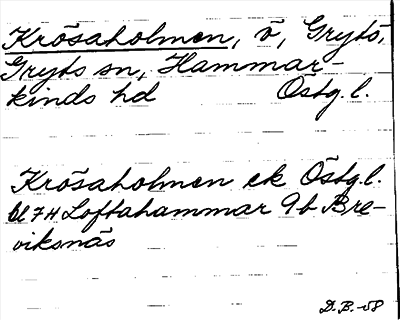 Krösaholmen, ö, Grytö,
Gryts sn, Hammar-
kinds hd Östg.l.
Krösaholmen ek Östg.l.
bl 7H Loftahammar 9b Bre-
viksnäs
D.B.-58